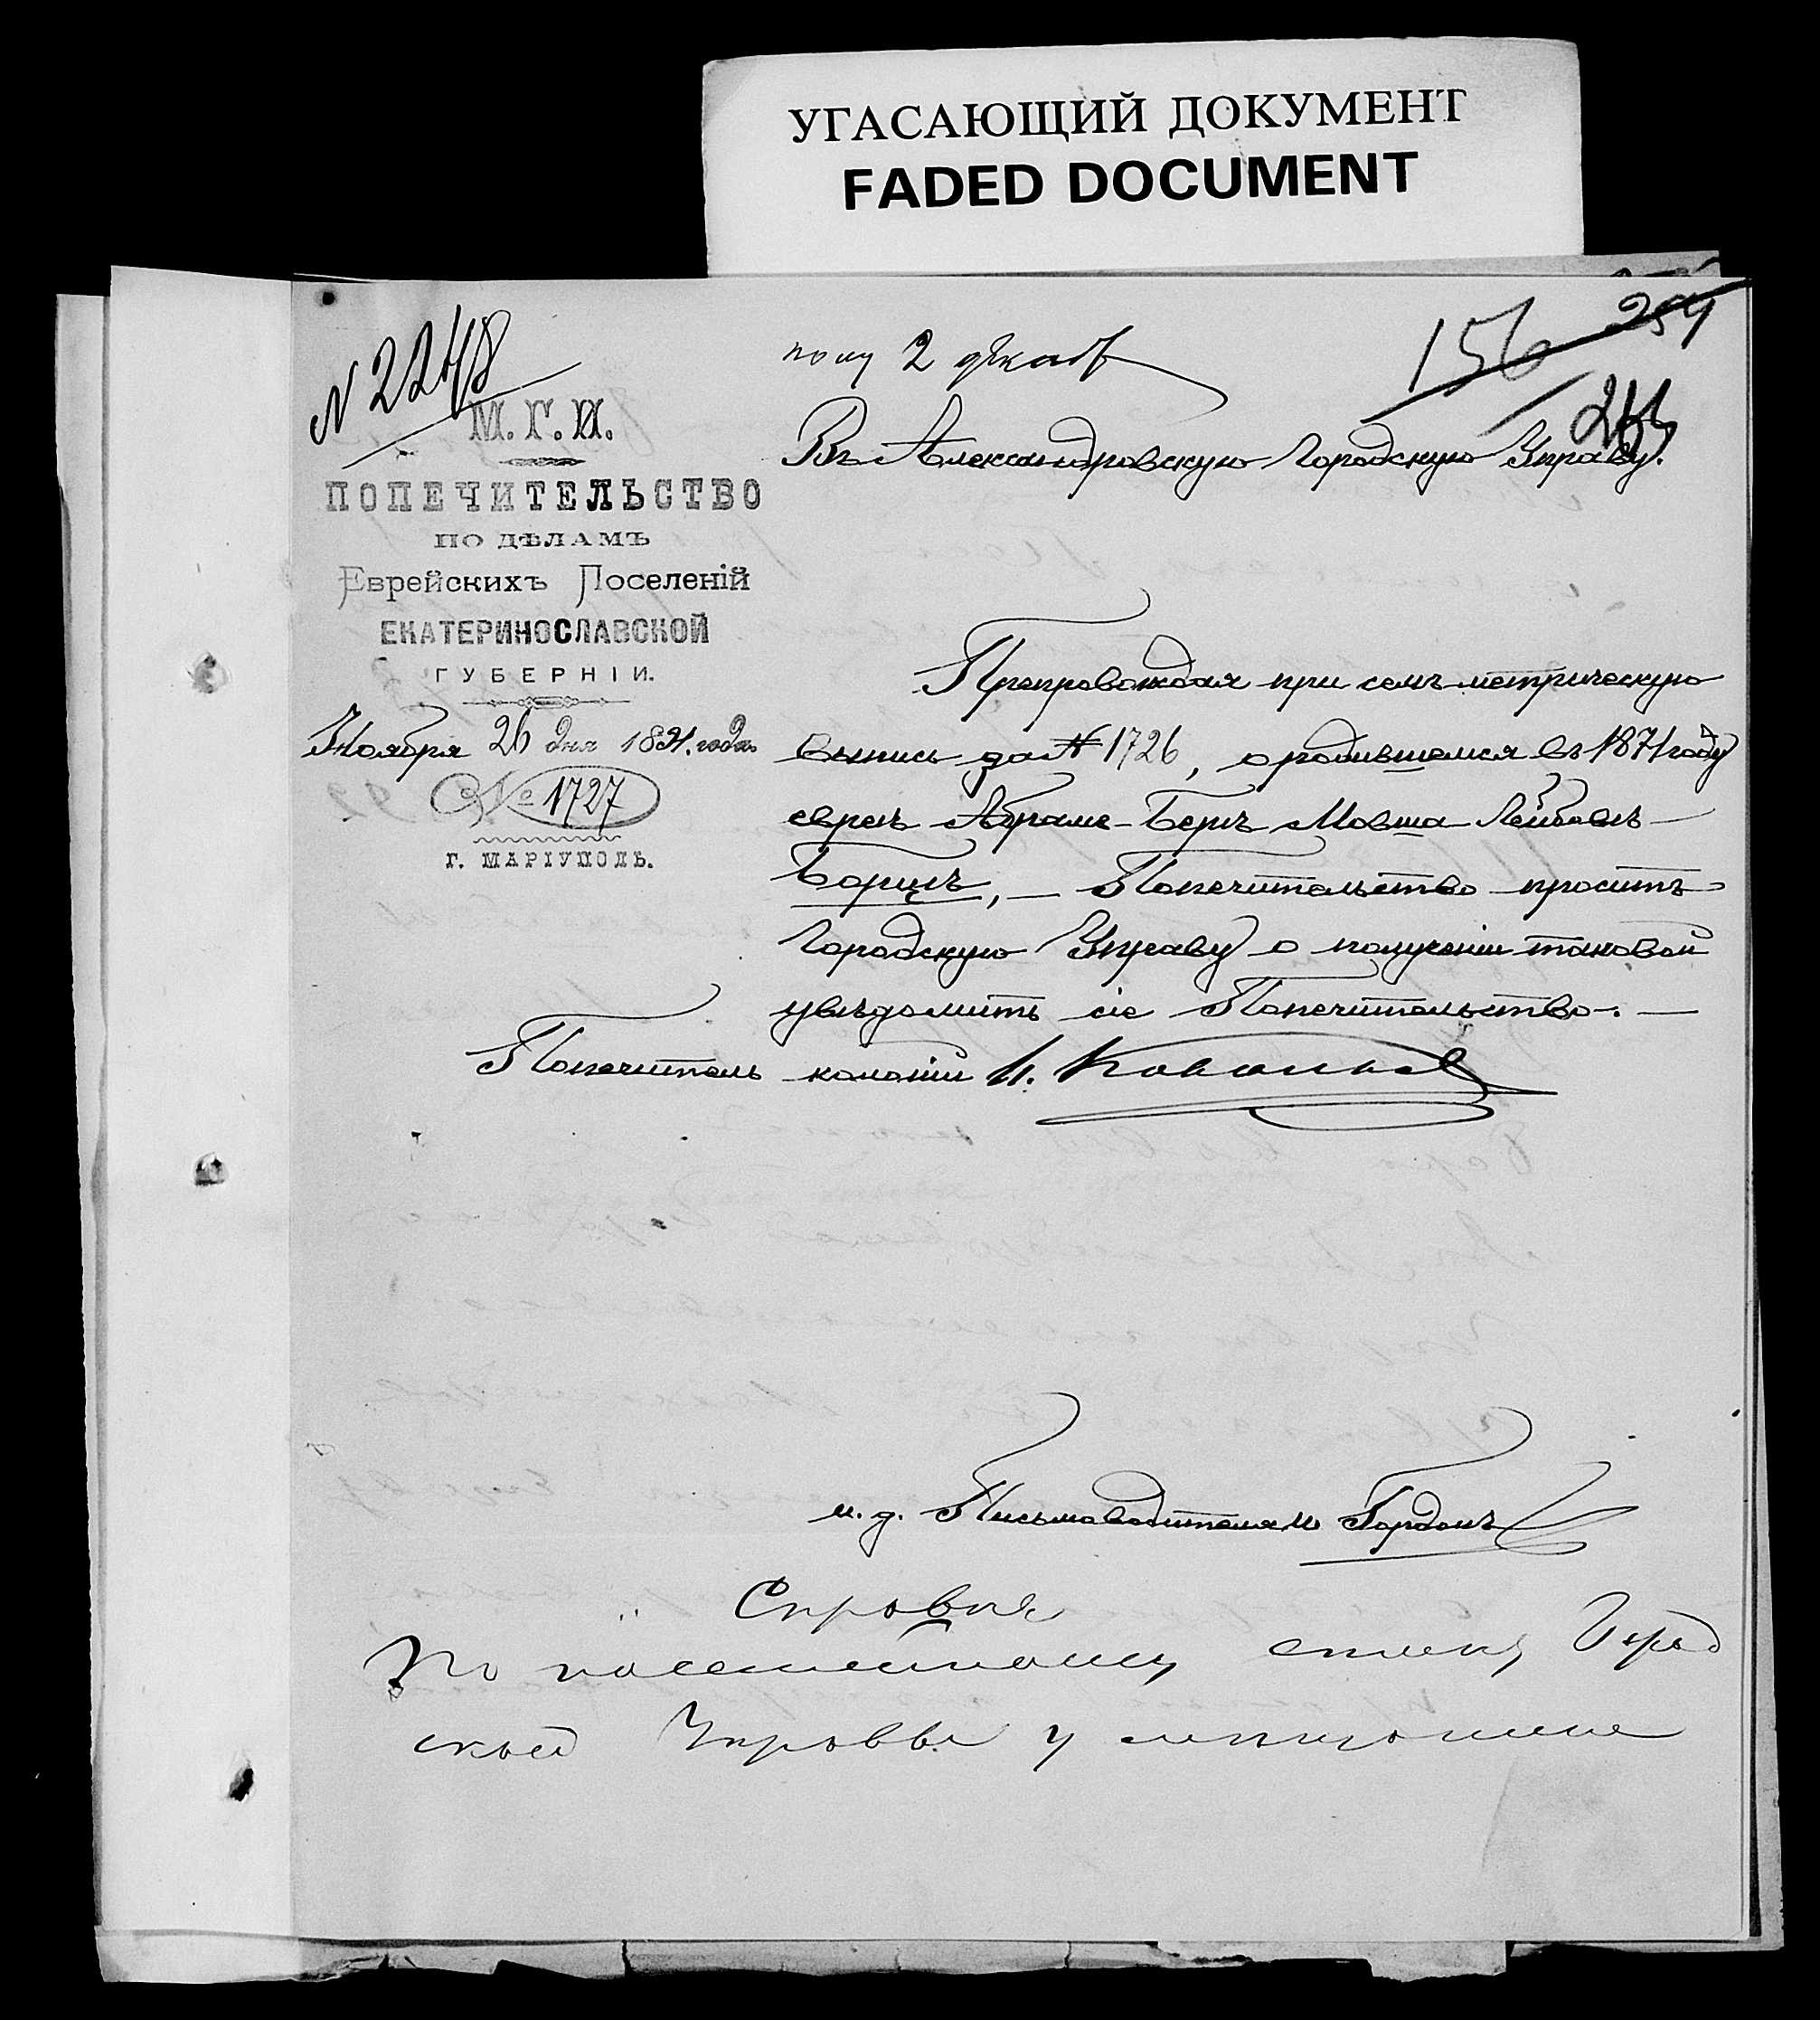 УГАСАЮЩИЙ ДОКУМЕНТ
FADED DOCUMENT
156
254
N 2248
2 декаб
М. Г. И.
ПОПЕЧИТЕЛЬСТВО
ПО ДѢЛАМЪ
Еврейскихъ Поселеній
ЕКАТЕРИНОСЛАВСКОЙ
ГУБЕРНІИ.
Ноября 26 дня 1891. года
№ 1727
Г. МАРІУПОЛЬ.
Въ Александровскую Городскую Управу.
Препровождая при семъ метрическую
выпись за № 1726, о родившемся въ 1871 году
евреѣ Абрамѣ-Беръ Мовша Лейбовѣ
Борцъ, — Попечительство проситъ
Городскую Управу о полученіи таковой
увѣдомить сіе Попечительство. —
Попечитель колоній И.
и. д. Письмоводителя М Гордонъ
Справка
По посемейному списку Город
ской Управы у мещанина